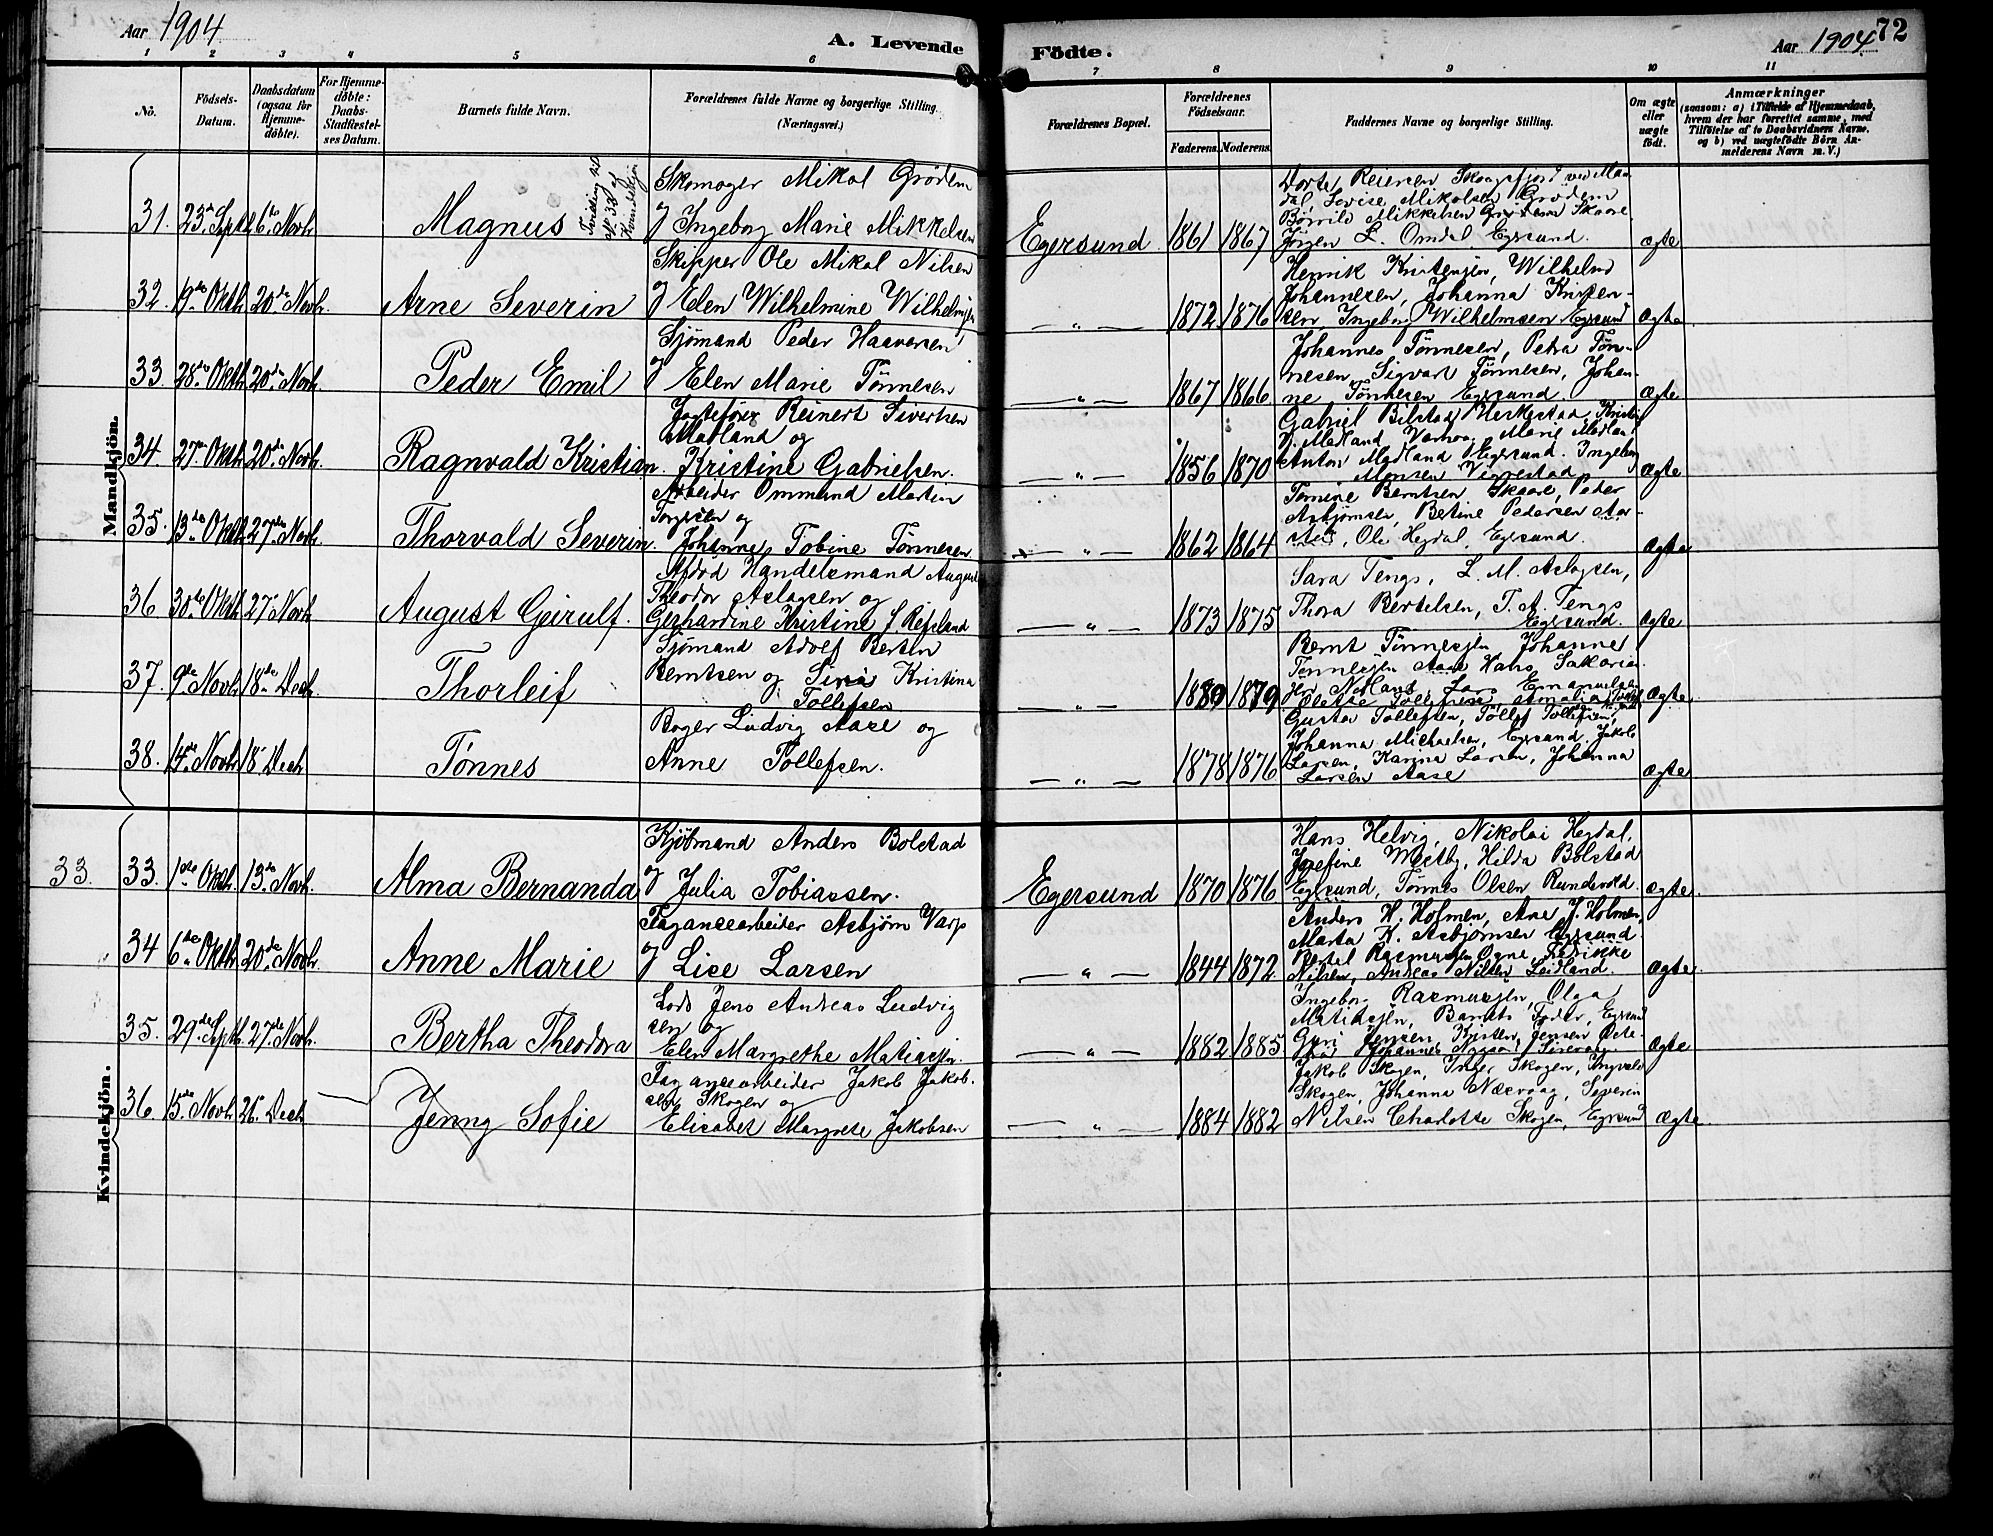 Aar 1904.
A. Levende Födte.
Aar 1904
72
1 2 3 4 5 6 7 8 9 10 11
No.
Födsels-
Datum.
Daabsdatum
(ogsaa for
Hjemme-
döbte).
For Hjemme-
döbte:
Daabs-
Stadfæstel-
ses Datum.
Barnets fulde Navn.
Forældrenes fulde Navne og borgerlige Stilling.
(Næringsvei.)
Forældrenes Bopæl.
Forældrenes
Födselsaar.
Faderens. Moderens.
Faddernes Navne og borgerlige Stilling.
Om ægte
eller
uægte
födt.
Anmærkninger
(saasom: a) i Tilfælde af Hjemmedaab,
hvem der har forrettet samme, med
Tilföielse af to Daabsvidners Navne,
og b) ved uægtefödte Börn An-
melderens Navn m. V.)
Mandkjön.
31. 23de Septb 6te Novb.
Magnus
Tvilling til
N. 38 af
Kvindekjön
Skomager Mikal Grødem
og Ingeborg Marie Mikkelsen
Egersund 1861 1867
Dorte Reiersen Skogsfjord ved Man-
dal, Lovise Mikalsen Grødem
Børrild Mikkelsen Grødem Skaare
Jørgen L. Omdal, Egersund.
ægte
32. 19de Oktb. 20de Novb.
Arne Severin
Skipper Ole Mikal Nilsen
og Elen Wilhelmine Wilhelmsen
— " — 1872 1876
Henrik Kristensen, Wilhelm
Johannesen, Johanna Kristen-
sen, Ingeborg Wilhelmsen Egersund
Ægte.
33 28de Oktb. 20de Novb.
Peder Emil
Sjømand Peder Haaversen
og Elen Marie Tønnesen
— " — 1867 1866
Johannes Tønnesen, Petra Tøn-
nesen, Sigvart Tønnesen, Johan-
ne Tønnesen Egersund.
Ægte.
34. 27de Oktb. 20de Novb.
Ragnvald Kristian.
Jagtefører Reinert Sivertsen
Madland og
Kristine Gabrielsen.
— " — 1856 1870
Gabriel Bilstad Heskestad, Kristen
Madland Marie Madland
Anton Madland Egersund. Ingeborg
Monsen
Ægte
35. 13de Oktb 27de Novb.
Thorvald Severin.
Arbeider Ommund Martin
Torgersen og
Johanne Tobine Tønnesen
— " — 1862 1864
Tomine Berntsen Skaare, Peder
Asbjørnsen, Betine Pedersen Aar-
stad, Ole Hegdal, Egersund.
Ægte
36 30te Oktb 27de Novb.
August Geirulf.
Afdød Handelsmand August
Theodor Aslagsen og
Gerhardine Kristine f. Refsland
— " — 1873 1875
Sara Tengs, L. M. Aslagsen,
Thora Bertelsen, T. A. Tengs
Egersund.
Ægte
37. 9de Novb. 18de Decb.
Thorleif
Sjømand Adolf Bertin
Berntsen og Sina Kristina
Tollefsen
— " — 1880 1879
Bernt Tønnesen Johanne
Tønnesen Aase Hans Sakaria-
sen Lars Emanuelsen
Olette Tollefsen Amalia
Ægte.
38. 14de Novb. 18 Decb
Tønnes
Bager Ludvig Aase og
Anne Tollefsen.
— " — 1878 1876
Gustav Tollefsen, Tollef Tollefsen,
Johanna Michaelsen, Egersund. Jakob
Larsen, Karina Larsen, Johanna
Larsen Aase
Ægte
Kvindekjön.
33. 33. 1ste Oktb. 13de Novb.
Alma Bernanda
Kjøbmand Anders Bolstad
og Julia Tobiassen.
Egersund 1870 1876
Hans Helvig, Nikolai Hegdal,
Josefine Westby, Hilda Bolstad
Egersund, Tønnes Olsen Rundevold.
Ægte.
34 6de Oktb. 20de Novb.
Anne Marie
Fayancearbeider Asbjørn Varp
og Lise Larsen
— " — 1844 1872
Anders H. Holmen, Ane J. Holmen,
Marta K. Asbjørnsen Egersund.
Bertel Rasmussen Ogne, Fredrikke
Nilsen, Andreas Nilsen Leidland.
Ægte.
35. 29de Septb. 27de Novb.
Bertha Theodora
Lods Jens Andreas Ludvig
sen og
Elen Margrethe Matiasen.
— " — 1882 1885
Ingeborg Rasmussen, Olga
Matiasen, Barnets Fader, Egersund
Guri Jensen, Kristen Jensen
Johannes Nygaard Sirevaag.
Ægte
36. 15de Novb. 26de Decb
Jenny Sofie
Fayancearbeider Jakob Jakob-
sen Skogen og
Elisabet Margrete Jakobsen
— " — 1884 1882
Jakob Skogen, Inger Skogen, Ingvald
Skogen, Johanna Nærvaag, Severin
Nilsen Charlotte Skogen, Egersund
Ægte.